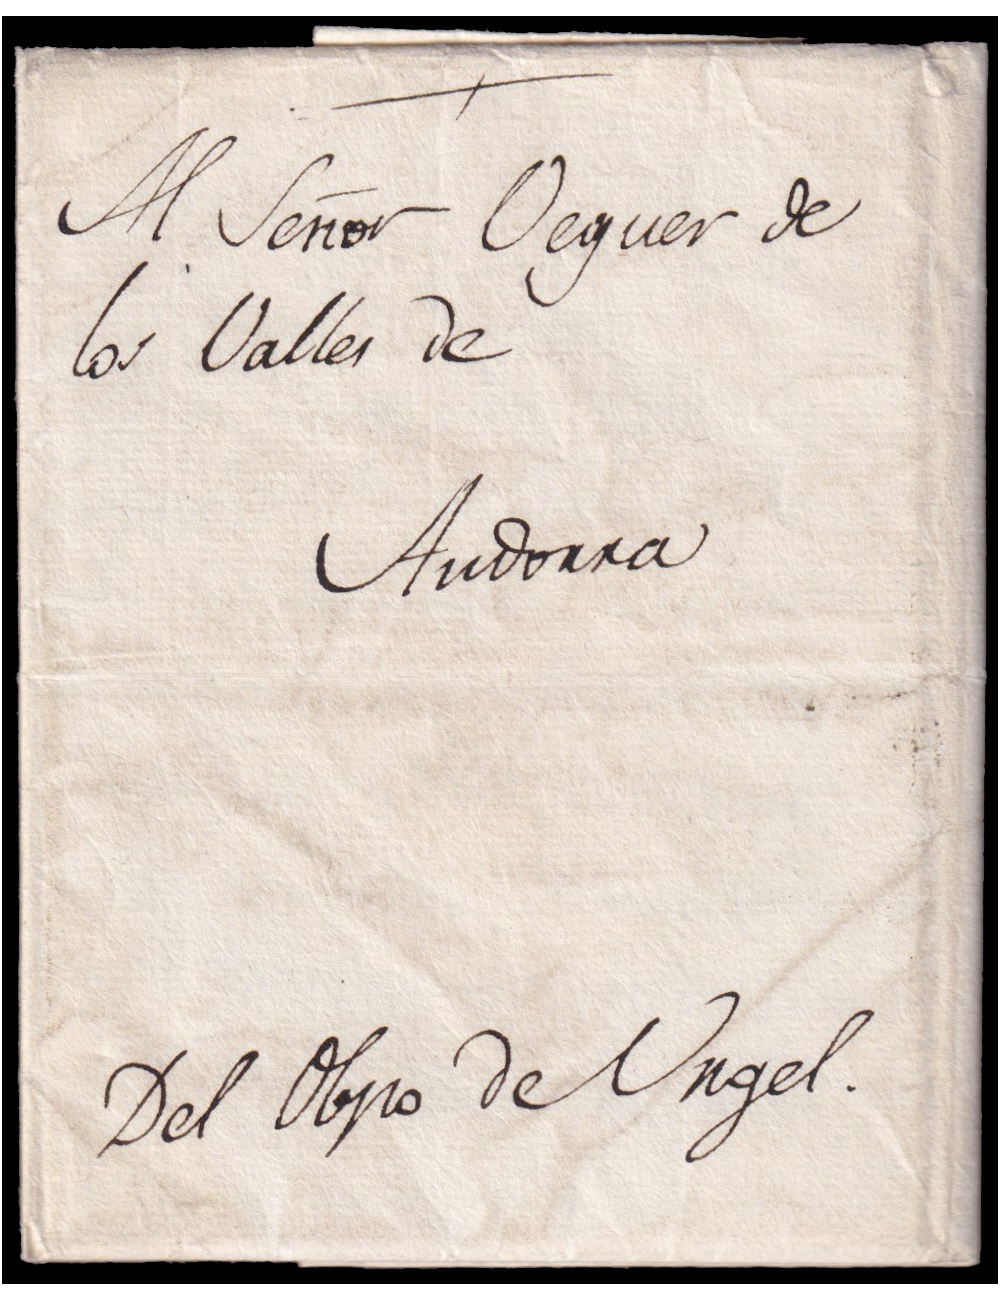 Al Señor Veguer de
los Valles de
Andorra
Del Obpo de Urgel.